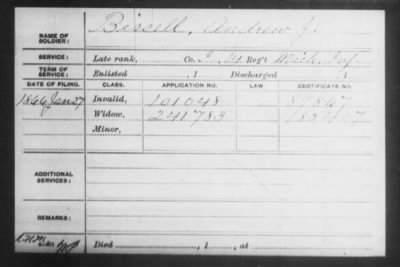 NAME OF SOLDIER: Bissell, Andrew J.
SERVICE: Late rank, Co. 14 Reg't Mich. Inf.
TERM OF SERVICE: Enlisted , 1 Discharged , 1
DATE OF FILING. CLASS. APPLICATION NO. LAW. CERTIFICATE NO.
1866 Jan 27 Invalid, 101048 89867
Widow, 241783
Minor,
ADDITIONAL SERVICES:
REMARKS:
Died , 1 , at